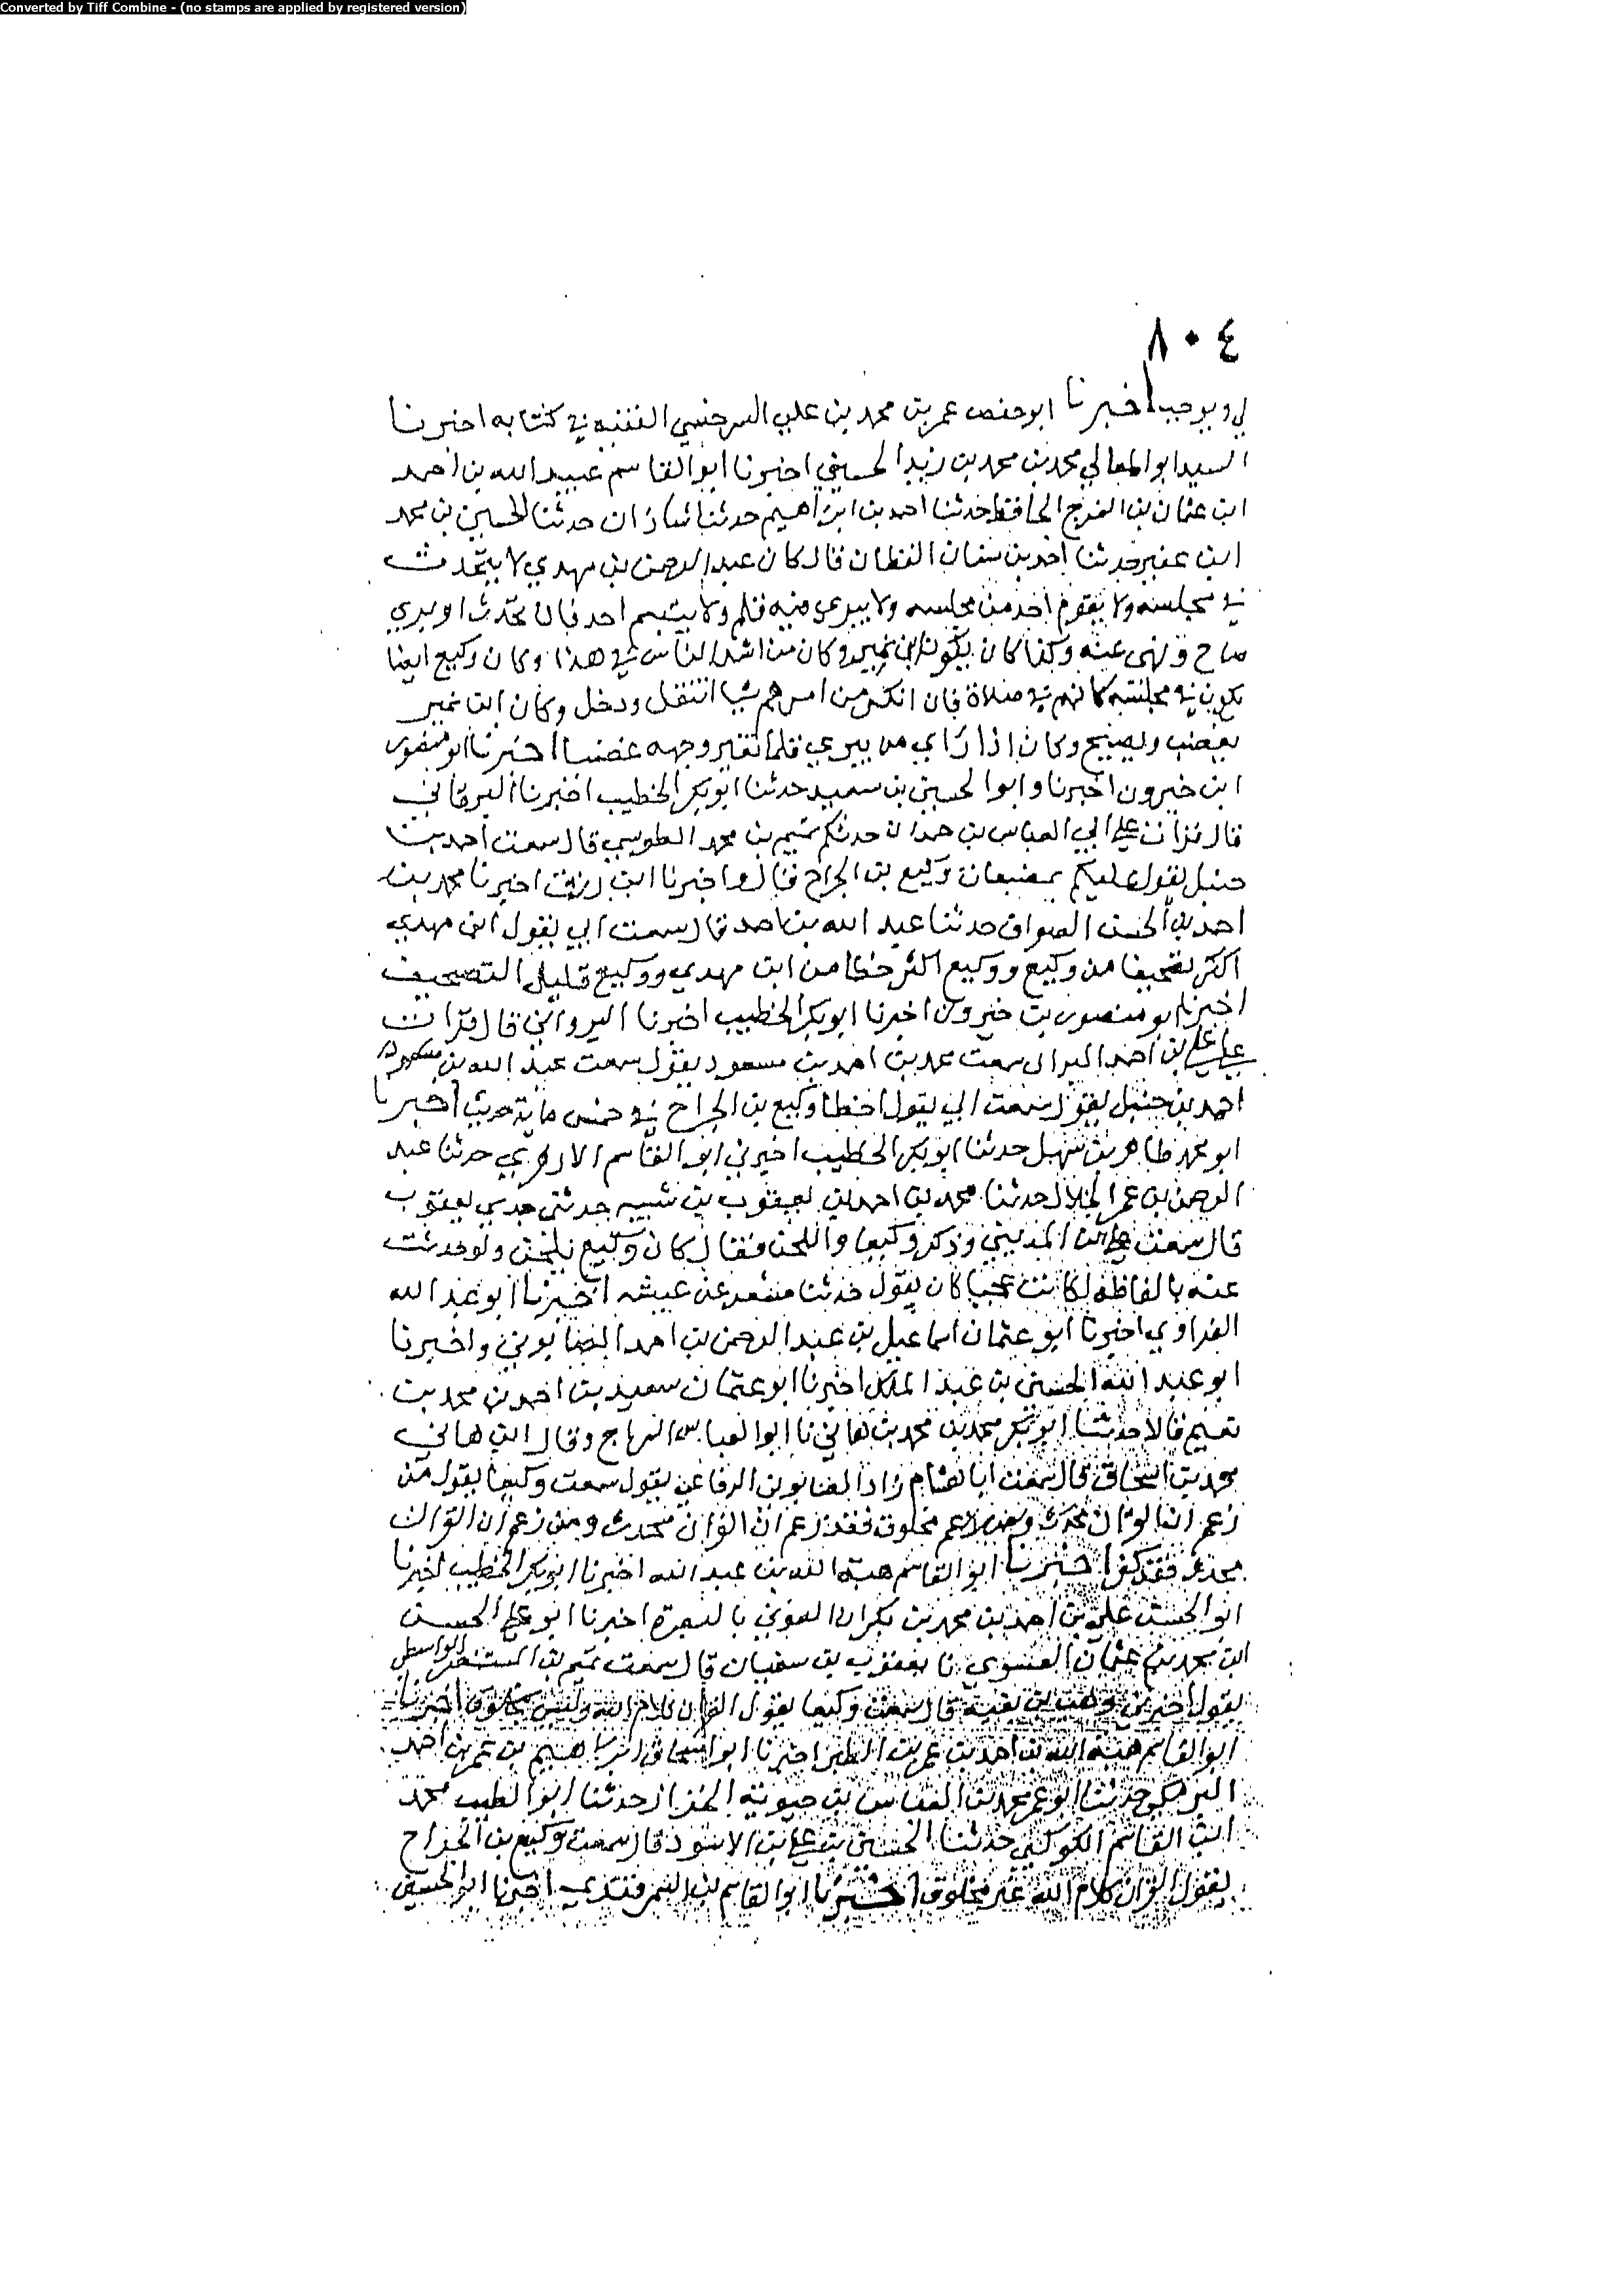 Converted by Tiff Combine - (no stamps are applied by registered version)
٨٠٤
اخبرنا ابو حفص عمر بن محمد بن علي السرخسي الفقيه في كتابه اخبرنا
السيد ابو المعالي محمد بن محمد بن زيد الحسيني اخبرنا ابو القاسم عبيد الله بن احمد
ابن عثمان بن الفرج الحافظ حدثنا احمد بن ابراهيم حدثنا شاذان حدثنا الحسين بن محمد
ابن عفير حدثنا احمد بن سنان القطان قال كان عبد الرحمن بن مهدي لا يتحدث
في مجلسه ولا يقوم احد من مجلسه ولا يبرى فيه قلم ولا يتبسم احد فان تحدث او بري
صاح ونهى عنه وكذا كان يكون ابن نمير وكان من اشد الناس في هذا وكان وكيع ايضا
يكون في مجلسه كانهم في صلاة فان انكر من امرهم شيا انتقل ودخل وكان ابن نمير
يغضب ويصيح وكان اذا راي من يبري قلما تغير وجهه غضبا اخبرنا ابو منصور
ابن خيرون اخبرنا وابو الحسن بن سعيد حدثنا ابو بكر الخطيب اخبرنا البرقاني
قال قرات علي ابي العباس بن حمدان حدثكم تميم بن محمد الطوسي قال سمعت احمد بن
حنبل يقول عليكم بمصنفات وكيع بن الجراح واخبرنا ابن رزق اخبرنا محمد بن
احمد بن الحسن الصواف حدثنا عبد الله بن احمد قال سمعت ابي يقول ابن مهدي
اكثر تصحيفا من وكيع ووكيع اكثر خطا من ابن مهدي ووكيع قليل التصحيف
اخبرنا ابو منصور بن خيرون اخبرنا ابو بكر الخطيب اخبرنا قال قرات
علي علي بن احمد سمعت محمد بن احمد بن مسعود يقول سمعت عبد الله بن
احمد بن حنبل يقول سمعت ابي يقول اخطا وكيع بن الجراح في خمس ماية حديث اخبرنا
ابو محمد طاهر بن سهل حدثنا ابو بكر الخطيب اخبرني ابو القاسم الازهري حدثنا عبد
الرحمن بن عمر الخلال حدثنا محمد بن احمد بن يعقوب بن شيبه حدثني جدي يعقوب
قال سمعت علي بن المديني وذكر وكيعا واللحن فقال كان وكيع يلحن ولو حدثت
عنه بالفاظه لكانت عجبا كان يقول حدثنا مسعر عن عيشه اخبرنا ابو عبد الله
الفراوي اخبرنا ابو عثمان اسماعيل بن عبد الرحمن بن احمد الصابوني واخبرنا
ابو عبد الله الحسين بن عبد الملك اخبرنا ابو عثمان سعيد بن احمد بن محمد بن
نعيم قالا حدثنا ابو بكر محمد بن محمد بن هاني نا ابو العباس السراج وقال ابن هاني
محمد بن اسحاق قال سمعت ابا هشام زاد الصابوني الرفاعي يقول سمعت وكيعا يقول من
زعم ان القران مخلوق فقد زعم ان القران محدث ومن زعم ان القران
محدث فقد كفر اخبرنا ابو القاسم هبة الله بن عبد الله اخبرنا ابو بكر الخطيب اخبرنا
ابو الحسن علي بن احمد بن محمد بن بكران الفوي بالبصرة اخبرنا ابو علي الحسن
ابن محمد بن عثمان الفسوي نا يعقوب بن سفيان قال سمعت تميم بن المنتصر الواسطي
يقول اخبرني وهب بن بقية قال سمعت وكيعا يقول القران كلام الله وليس بمخلوق اخبرنا
ابو القاسم هبة الله بن احمد بن عمر بن الطبر اخبرنا ابو اسحاق ابراهيم بن عمر بن احمد
البرمكي حدثنا ابو عمر محمد بن العباس بن حيوية الخزاز حدثنا ابو الطيب محمد
ابن القاسم الكوكبي حدثنا الحسين بن علي بن الاسود قال سمعت وكيع بن الجراح
يقول القران كلام الله غير مخلوق اخبرنا ابو القاسم بن السمرقندي اخبرنا ابو الحسين